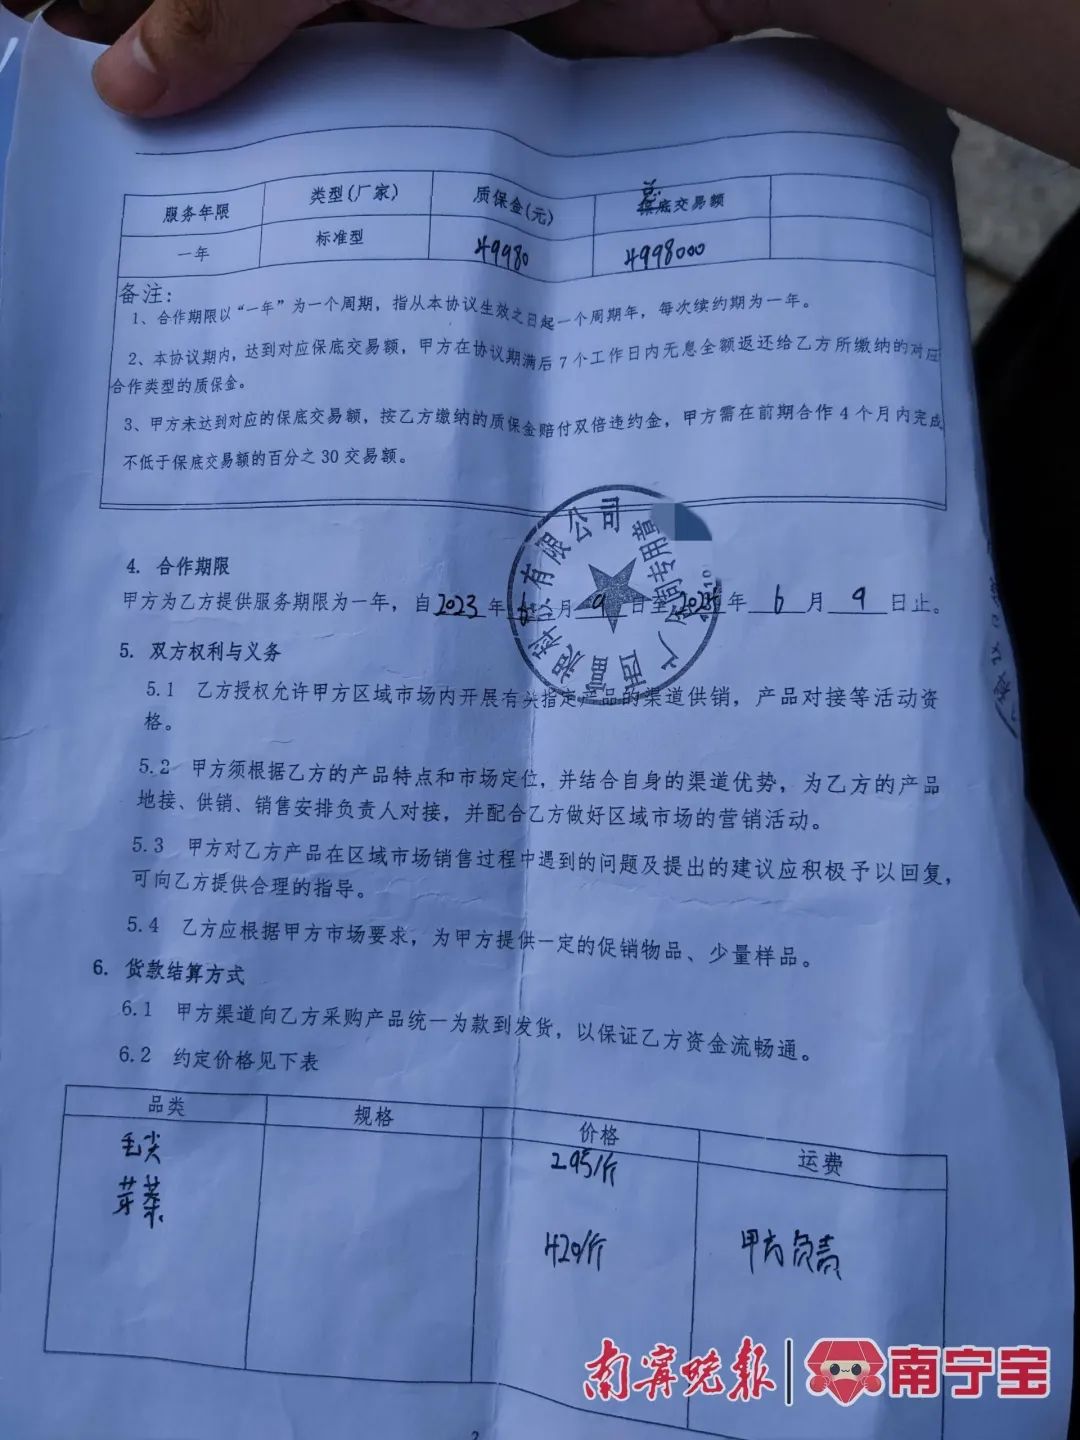 服务年限 类型(厂家) 质保金(元) 总 保底交易额
一年 标准型 49980 4998000
备注：
1、合作期限以“一年”为一个周期，指从本协议生效之日起一个周期年，每次续约期为一年。
2、本协议期内，达到对应保底交易额，甲方在协议期满后7个工作日内无息全额返还给乙方所缴纳的对应
合作类型的质保金。
3、甲方未达到对应的保底交易额，按乙方缴纳的质保金赔付双倍违约金，甲方需在前期合作4个月内完成
不低于保底交易额的百分之30交易额。
4. 合作期限
甲方为乙方提供服务期限为一年，自2023年6月9日至2024年6月9日止。
5. 双方权利与义务
5.1 乙方授权允许甲方区域市场内开展有关指定产品的渠道供销，产品对接等活动资
格。
5.2 甲方须根据乙方的产品特点和市场定位，并结合自身的渠道优势，为乙方的产品
地接、供销、销售安排负责人对接，并配合乙方做好区域市场的营销活动。
5.3 甲方对乙方产品在区域市场销售过程中遇到的问题及提出的建议应积极予以回复，
可向乙方提供合理的指导。
5.4 乙方应根据甲方市场要求，为甲方提供一定的促销物品、少量样品。
6. 货款结算方式
6.1 甲方渠道向乙方采购产品统一为款到发货，以保证乙方资金流畅通。
6.2 约定价格见下表
品类 规格 价格 运费
毛尖 295/斤
芽茶
420/斤 甲方负责
有限公司
合同专用章
南宁晚报 南宁宝
2